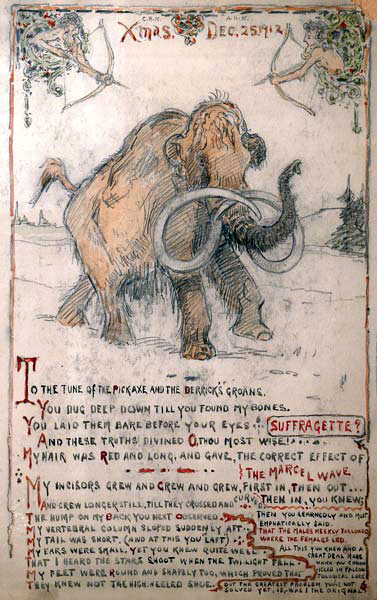 C.R.K. A.H.K.
Xmas. Dec. 25. 1912
To the tune of the pickaxe and the derrick's groans.
You dug deep down till you found my bones.
You laid them bare before your eyes
And these truths divined O, thou most wise!
SUFFRAGETTE?
My hair was Red and long, and gave, the correct effect of
The Marcel wave
My incisors grew and grew and grew, first in, then out
And grew longer still, till they crossed and curv'd then in, you knew;
The hump on my back you next observed.
My vertebral column sloped suddenly
My tail was short, (and at this you left)
My ears were small, yet you knew quite well
That I heard the stars shoot when the twilight fell
My feet were round and shapely too, which proved that
They knew not the high-heeled shoe.
Then you learnedly and most
emphatically said.
That the males meekly followed
where the females led.
All this you knew and a
great deal more
when you
But the greatest problem you've not
solved yet, is, was I the original